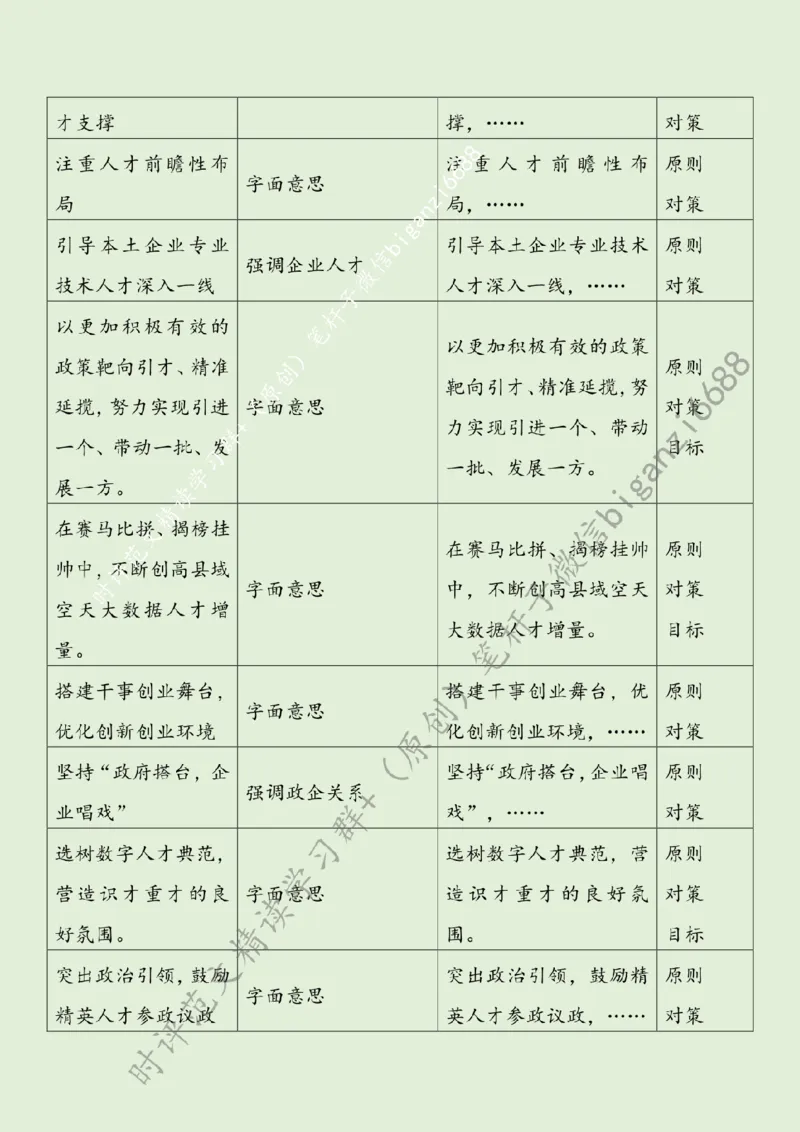 才支撑
撑，……
对策
注重人才前瞻性布
局
字面意思
注重人才前瞻性布
局，……
原则
对策
引导本土企业专业
技术人才深入一线
强调企业人才
引导本土企业专业技术
人才深入一线，……
原则
对策
以更加积极有效的
政策靶向引才、精准
延揽，努力实现引进
一个、带动一批、发
展一方。
字面意思
以更加积极有效的政策
靶向引才、精准延揽，努
力实现引进一个、带动
一批、发展一方。
原则
对策
目标
在赛马比拼、揭榜挂
帅中，不断创高县域
空天大数据人才增
量。
字面意思
在赛马比拼、揭榜挂帅
中，不断创高县域空天
大数据人才增量。
原则
对策
目标
搭建干事创业舞台，
优化创新创业环境
字面意思
搭建干事创业舞台，优
化创新创业环境，……
原则
对策
坚持“政府搭台，企
业唱戏”
强调政企关系
坚持“政府搭台，企业唱
戏”，……
原则
对策
选树数字人才典范，
营造识才重才的良
好氛围。
字面意思
选树数字人才典范，营
造识才重才的良好氛
围。
原则
对策
目标
突出政治引领，鼓励
精英人才参政议政
字面意思
突出政治引领，鼓励精
英人才参政议政，……
原则
对策
时评范文精读学习群+（原创）笔杆子微信biganzi6688
时评范文精读学习群+（原创）笔杆子微信biganzi6688